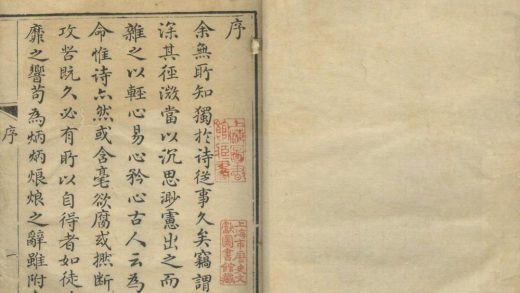 上海市歷史文
獻圖書館藏
序
余無所知獨於诗從事久矣竊謂
深其徑微當以沉思渺慮出之而
雜之以輕心易心矜心古人云為
命惟诗亦然或含毫欲腐或撚断
攻苦既久必有所以自得者如徒
靡之響苟為炳炳烺烺之辭雖附
序
一